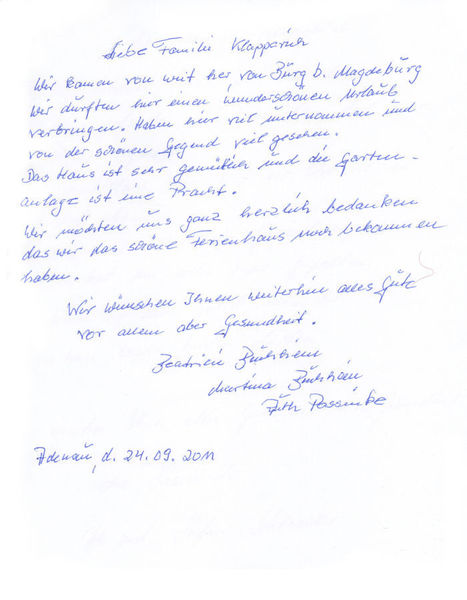 Liebe Familie Klapperich
Wir kamen von weit her von Burg b. Magdeburg
Wir durften hier einen wunderschönen Urlaub
verbringen. Haben hier viel unternommen und
von der schönen Gegend viel gesehen.
Das Haus ist sehr gemütlich und die Garten-
anlage ist eine Pracht.
Wir möchten uns ganz herzlich bedanken
das wir das schöne Ferienhaus noch bekommen
haben.
Wir wünschen Ihnen weiterhin alles Gute
vor allem aber Gesundheit.
Martina
Ruth
Adenau, d. 24.09.2011